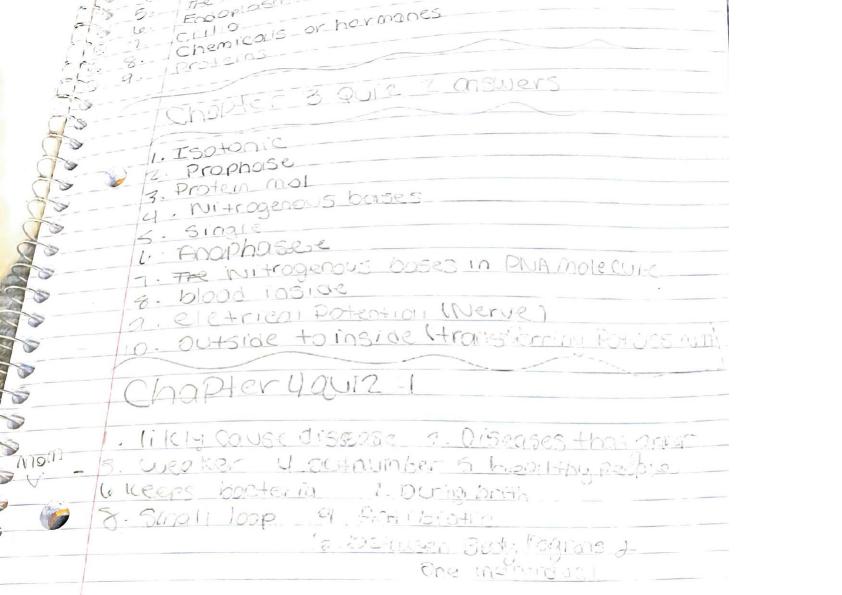 5. The
6. Endoplas
7. Cilia
8. Chemicals or hormones
9. Proteins
Chapter 3 Quiz 2 answers
1. Isotonic
2. Prophase
3. Protein mol
4. Nitrogenous bases
5. Single
6. Anaphase
7. The Nitrogenous bases in DNA molecule
8. blood inside
9. eletrical Potential (Nerve)
10. outside to inside
Chapter 4 quiz 1
1. likly cause disease 2. Diseases that
3. weaker 4. outnumber 5. healthy people
6 Keeps bacteria 7. During
8. Small loop 9.